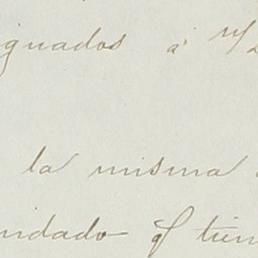 ignados á
la misma
ndado q tien